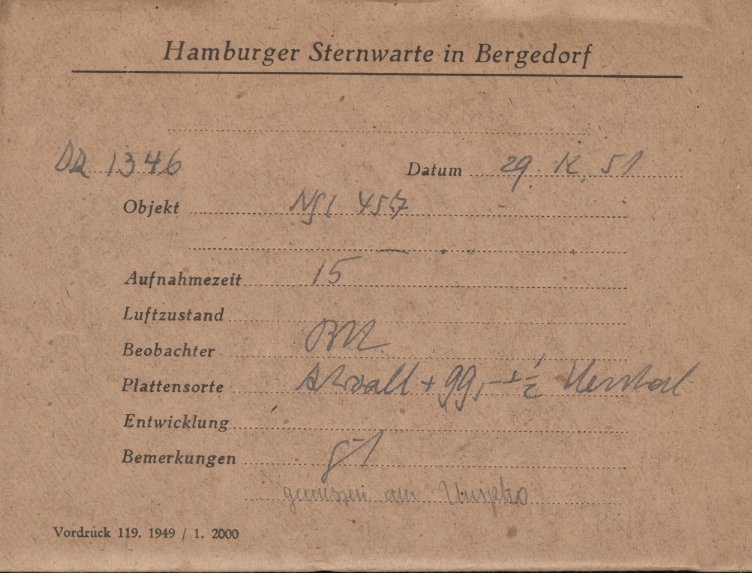 Hamburger Sternwarte in Bergedorf
1346 Datum 29. 12. 51
Objekt NGC 457
Aufnahmezeit 15
Luftzustand
Beobachter
Plattensorte + 99,
Entwicklung
Bemerkungen
gemessen am
Vordruck 119. 1949 / 1. 2000